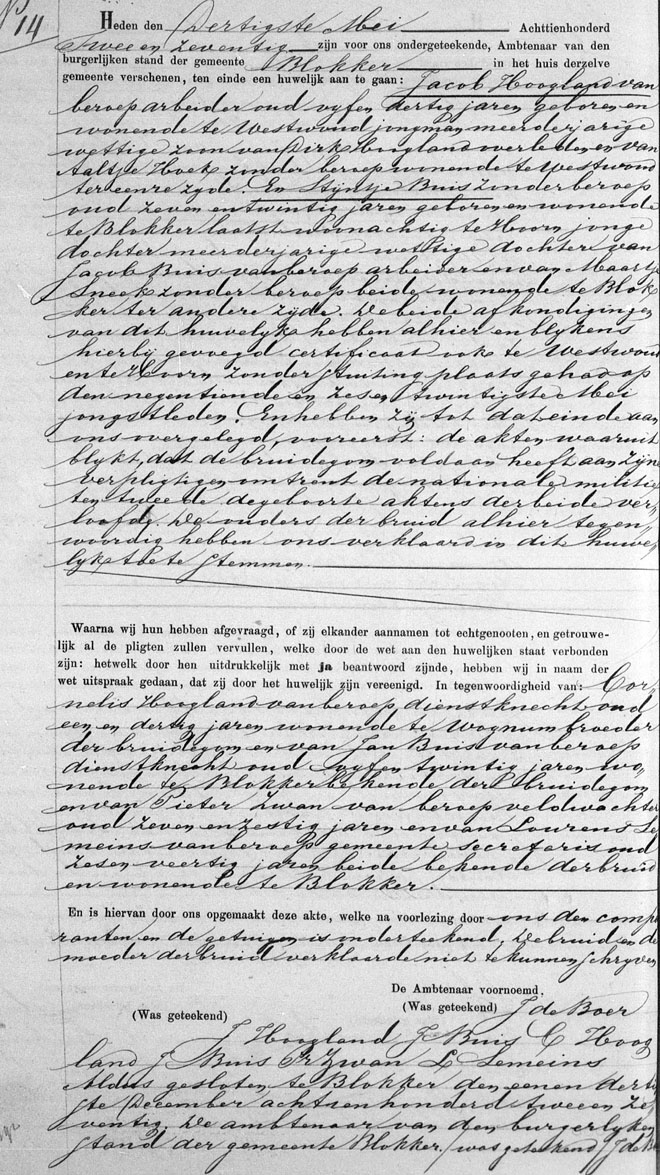 No
14
Heden den Dertigste Mei Achttienhonderd
Twee en zeventig zijn voor ons ondergeteekende, Ambtenaar van den
burgerlijken stand der gemeente Blokker in het huis derzelve
gemeente verschenen, ten einde een huwelijk aan te gaan: Jacob Hoogland van
beroep arbeider oud vyf en dertig jaren geboren en
wonende te Westwoud jongman meerderjarige
wettige zoon van Dirk Hoogland overleden en van
Aaltje Hoek zonder beroep wonende te Westwoud
ter eenre zyde. En Styntje Buis zonder beroep
oud zeven en twintig jaren geboren en wonende
te Blokker laatst woonachtig te Hoorn jonge
dochter meerderjarige wettige dochter van
Jacob Buis van beroep arbeider en van Maartje
Sneek zonder beroep beide wonende te Blok
ker ter andere zyde. De beide afkondigingen
van dit huwelyk hebben alhier en blykens
hierby gevoegd certificaat ook te Westwoud
en te Hoorn zonder stuiting plaats gehad op
den negentiende en zes en twintigste Mei
jongstleden. En hebben zy tot dat einde aan
ons overgelegd, vooreerst: de akten waaruit
blykt, dat de bruidegom voldaan heeft aan zyne
verpligtigen omtrent de nationale militie
ten tweede de geboorte aktens der beide ver,
loofde. De ouders der bruid alhier tegen,
woordig hebben ons verklaard in dit huwe,
lyk toe te stemmen.
Waarna wij hun hebben afgevraagd, of zij elkander aannamen tot echtgenooten, en getrouwe-
lijk al de pligten zullen vervullen, welke door de wet aan den huwelijken staat verbonden
zijn: hetwelk door hen uitdrukkelijk met ja beantwoord zijnde, hebben wij in naam der
wet uitspraak gedaan, dat zij door het huwelijk zijn vereenigd. In tegenwoordigheid van: Cor,
nelis Hoogland van beroep dienstknecht oud
een en dertig jaren wonende te Wognum broeder
der bruidegom en van Jan Buis van beroep
dienstknecht oud vyf en twintig jaren wo,
nende te Blokker bekende der bruidegom
en van Pieter Zwan van beroep veldwachter
oud zeven en zestig jaren en van Lourens Le
meins van beroep gemeente secretaris oud
zes en veertig jaren beide bekende der bruid
en wonende te Blokker.
En is hiervan door ons opgemaakt deze akte, welke na voorlezing door ons den compa
ranten en de getuigen is onderteekend. De bruid en de
moeder der bruid verklaarde niet te kunnen schryven
De Ambtenaar voornoemd,
(Was geteekend) (Was geteekend) J de Boer
J Hoogland J Buis C Hoog
land J Buis P Zwan L Lemeins
Aldus gesloten te Blokker den eenen dertig
ste December achttienhonderd twee en ze
ventig. De ambtenaar van den burgerlyken
stand der gemeente Blokker. (was geteekend) J de B